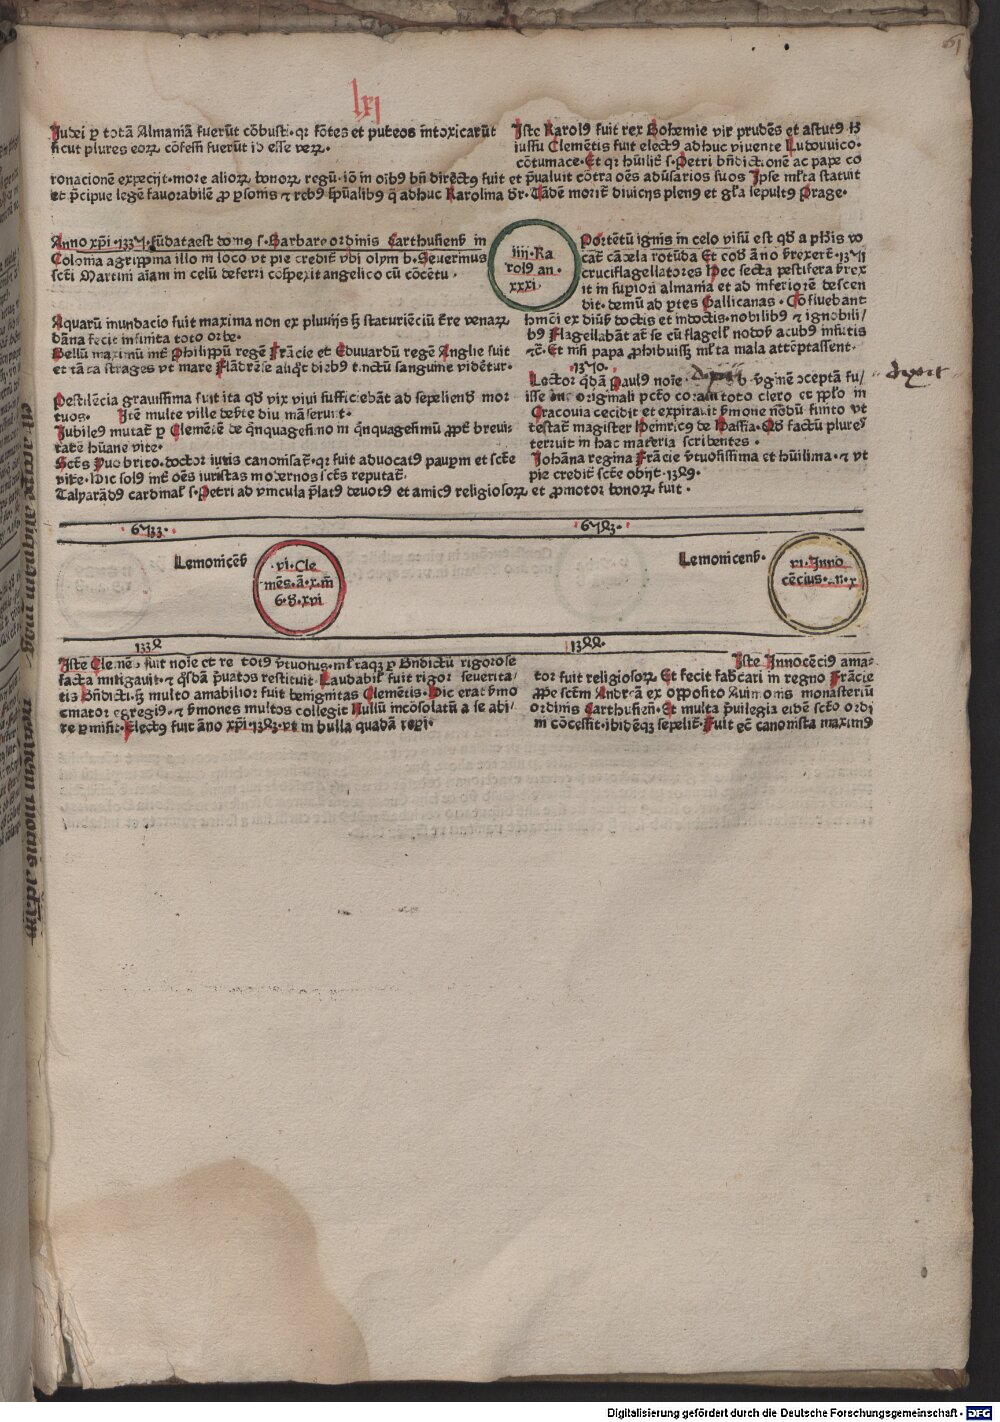 lxj
61
Judei ꝑ totā Almaniā fuerūt cōbusti·qꝛ fōtes et puteos intoxicarūt
sicut plures eoꝝ cōfessi fuerūt id esse veꝝ·
Iste Karolꝰ fuit rex Bohemie vir prudēs et astutꝰ hͦ
iussu Clemētis fuit electꝰ adhuc viuente Ludouuico·
cōtumace·Et qꝛ hūilit̄ s·Petri bn̄dictionē ac pape co
ronacionē expecijt·more alioꝝ bonoꝝ regū·iō in oībꝰ bn̄ directꝰ fuit et p̄ualuit cōtra oēs adūsarios suos Ipse ml̄ta statuit
et p̄cipue legē fauorabilē ꝓ ꝑsonis ⁊ rebꝰ sp̄ualibꝰ q̄ adhuc Karolina dr̄·Tādē morit̄ diuicijs plenꝰ et gl̄a sepultꝰ Prage·
Anno xp̄i·1337·fūdata est domꝰ s·Barbare ordinis Carthusienß in
Colonia agrippina illo in loco vt pie credit̄ vbi olym b·Seuerinus
sc̄ti Martini aīam in celū deferri cōspexit angelico cū cōcētu·
iiij·Ka
rolꝰ an·
xxxi·
Portētū ignis in celo visū est qd̄ a ph̄is vo
cat̄ cādela rotūda Et eod̄ āno v̄rexert̄·1347
cruciflagellatores Hec secta pestifera v̄rex
it in supiori almania et ad inferiorē descen
dit·demū ad ꝑtes Gallicanas·Cōfluebant
hoīes ex diūß doctis et indoctis·nobilibꝰ ⁊ ignobili/
bꝰ Flagellabāt aūt se cū flagell̄ nodoß acubꝰ infixis
⁊c̄·Et nisi papa ꝓhibuiss̄ ml̄ta mala attēptassent·
Aquarū inundacio fuit maxima non ex pluuijs sꝫ scaturiēciū t̄re venaꝝ
dāna fecit infinita toto orbe·
Bellū maximū int̄ Philippū regē Frācie et Edwardū regē Anglie fuit
et tāta strages vt mare Flādrēse aliqt̄ diebꝰ tinctū sanguine vidētur·
·1370·
Lector qdā Paulꝰ noīe b·v̄ginē ↄceptā fu/
isse in originali pctō coram toto clero et pplo in
Cracouia cecidit et expirauit s̄mone nōdū finito vt
testat̄ magister Heinricꝰ de Hassia·Qd̄ factū plures
terruit in hac materia scribentes·
Johāna regina Frācie v̄tuosissima et hūilima·⁊ vt
pie credit̄ sctē obijt·1349·
Pestilēcia grauissima fuit ita qd̄ vix viui sufficiebāt ad sepeliend̄ mor
tuos· Itē multe ville deßte diu māserunt·
Jubileꝰ mutat̄ ꝑ Clemētē de qn̄quagesimo in qn̄quagesimū ꝓpt̄ breui-
tatē hūane vite·
Sctꝰ Yuo brito·doctor iuris canonisat̄·qꝛ fuit aduocatꝰ paupm et sctē
vite·Hic solꝰ int̄ oēs iuristas modernos sctꝰ reputat̄·
Talyarādꝰ cardinal̄ s·Petri ad vincula p̄latꝰ deuotꝰ et amicꝰ religiosoꝝ et ꝓmotor bonoꝝ fuit·
·6533·
·6543·
Lemonicēß
·vi·Cle
mēs·ā·x·m̄
6·8·xvi
Lemonicenß·
vi·Inno
cēcius·an·x
1334
1344·
Iste Clemēs fuit noīe et re totꝰ v̄tuosus·ml̄taqꝫ ꝑ Bn̄dictū rigorose
facta mitigauit·⁊ qͦsdā p̄uatos restituit·Laudabil̄ fuit rigor seuerita/
tis Bn̄dicti·sꝫ multo amabilior fuit benignitas Clemētis·Hic erat s̄mo
cinator egregiꝰ·⁊ s̄mones multos collegit Nullū incōsolatū a se abi/
re ꝑmisit·Electꝰ fuit āno xp̄i·1342·vt in bulla quadā repi·
Iste Innocēciꝰ ama-
tor fuit religiosoꝝ Et fecit fab̄cari in regno Frācie
ꝓpe sctm̄ Andreā ex opposito Auinionis monasteriū
ordinis Carthusien̄·Et multa p̄uilegia eidē sctō ordi
ni cōcessit·ibidēqꝫ sepelit̄·Fuit ec̄ canonista maximꝰ
Digitalisierung gefördert durch die Deutsche Forschungsgemeinschaft - DFG